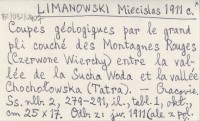 LIMANOWSKI Miecislas 1911 c.
Coupes géologiques par le grand
pli couché des Montagnes Rouges
(Czerwone Wierchy) entre la val-
lée de la Sucha Woda et la vallée
Chochołowska (Tatra). — Cracovie.
Ss. nlb. 2, 279-291, il., tabl. 1, okł.,
cm 25 x 17. Odb. z: jw. 1911 (ale z pol.